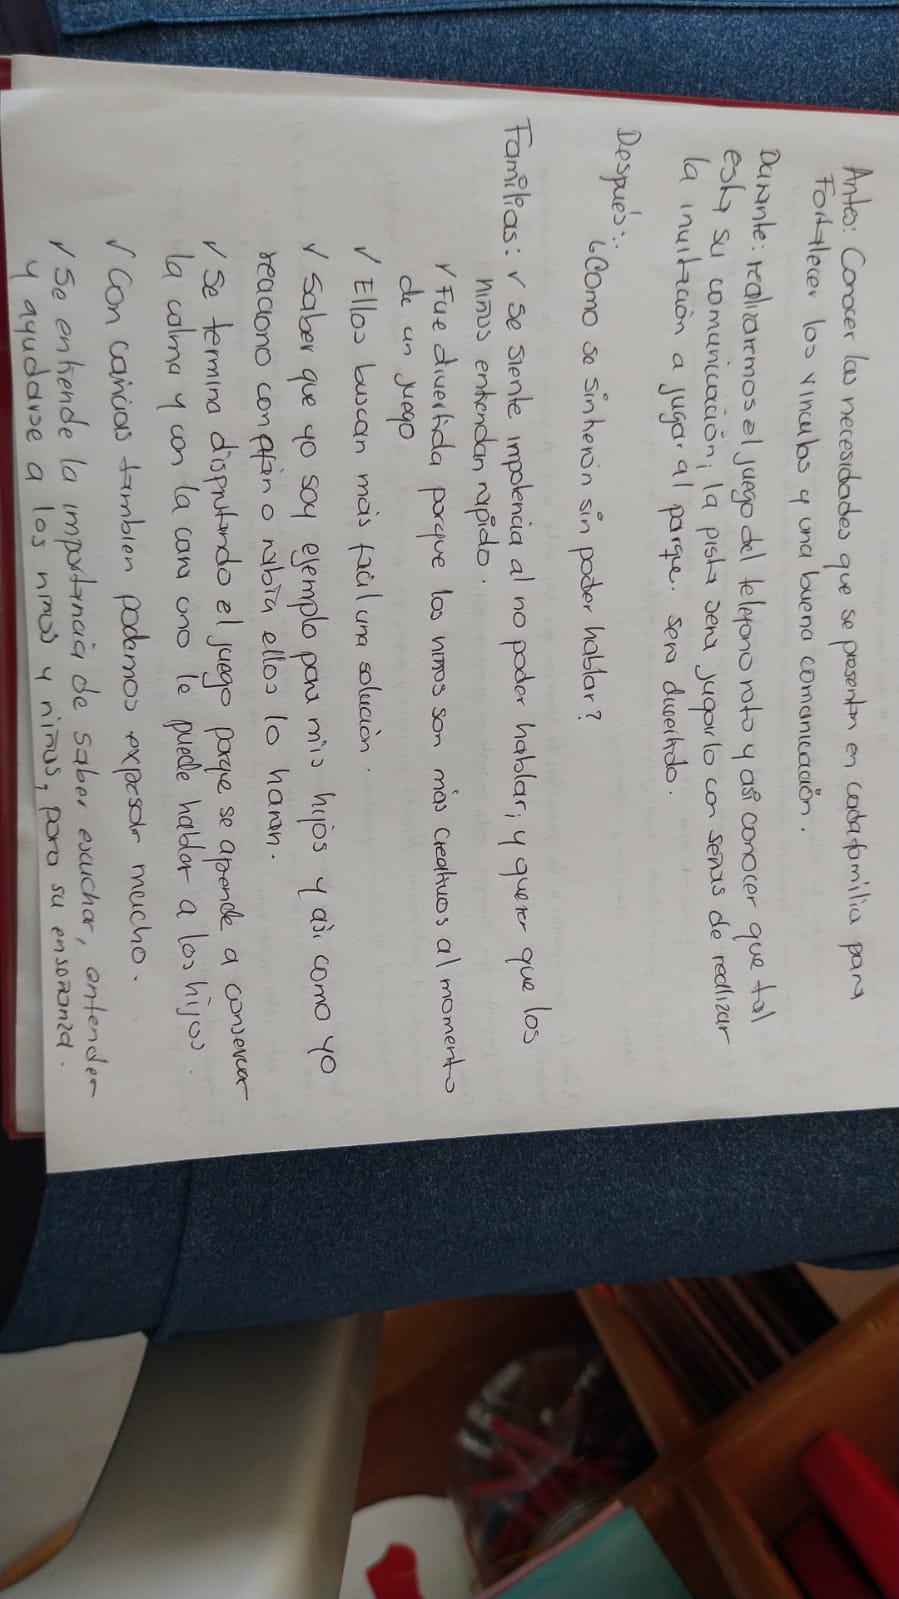 Antes: Conocer las necesidades que se presentan en cada familia para
Fortalecer los vinculos y una buena comunicación.
Durante: realizaremos el juego del telefono roto y asi conocer que tal
esta su comunicación; la pista sera jugarlo con señas de realizar
la invitación a jugar al parque. sera divertido.
Después:
¿Como se sintierón sin poder hablar?
Familias: ✓ Se siente impotencia al no poder hablar; y querer que los
niños entiendan rapido.
✓ Fue divertida porque los niños son más creativos al momento
de un juego
✓ Ellos buscan más facil una solución.
✓ Saber que yo soy ejemplo para mis hijos y asi como yo
reaciono con o rabia ellos lo haran.
✓ Se termina disfrutando el juego porque se aprende a conservar
la calma y con la cara uno le puede hablar a los hijos.
✓ Con caricias tambien podemos expresar mucho.
✓ Se entiende la importancia de saber escuchar, entender
y ayudarse a los niños y niñas, para su enseñanza.